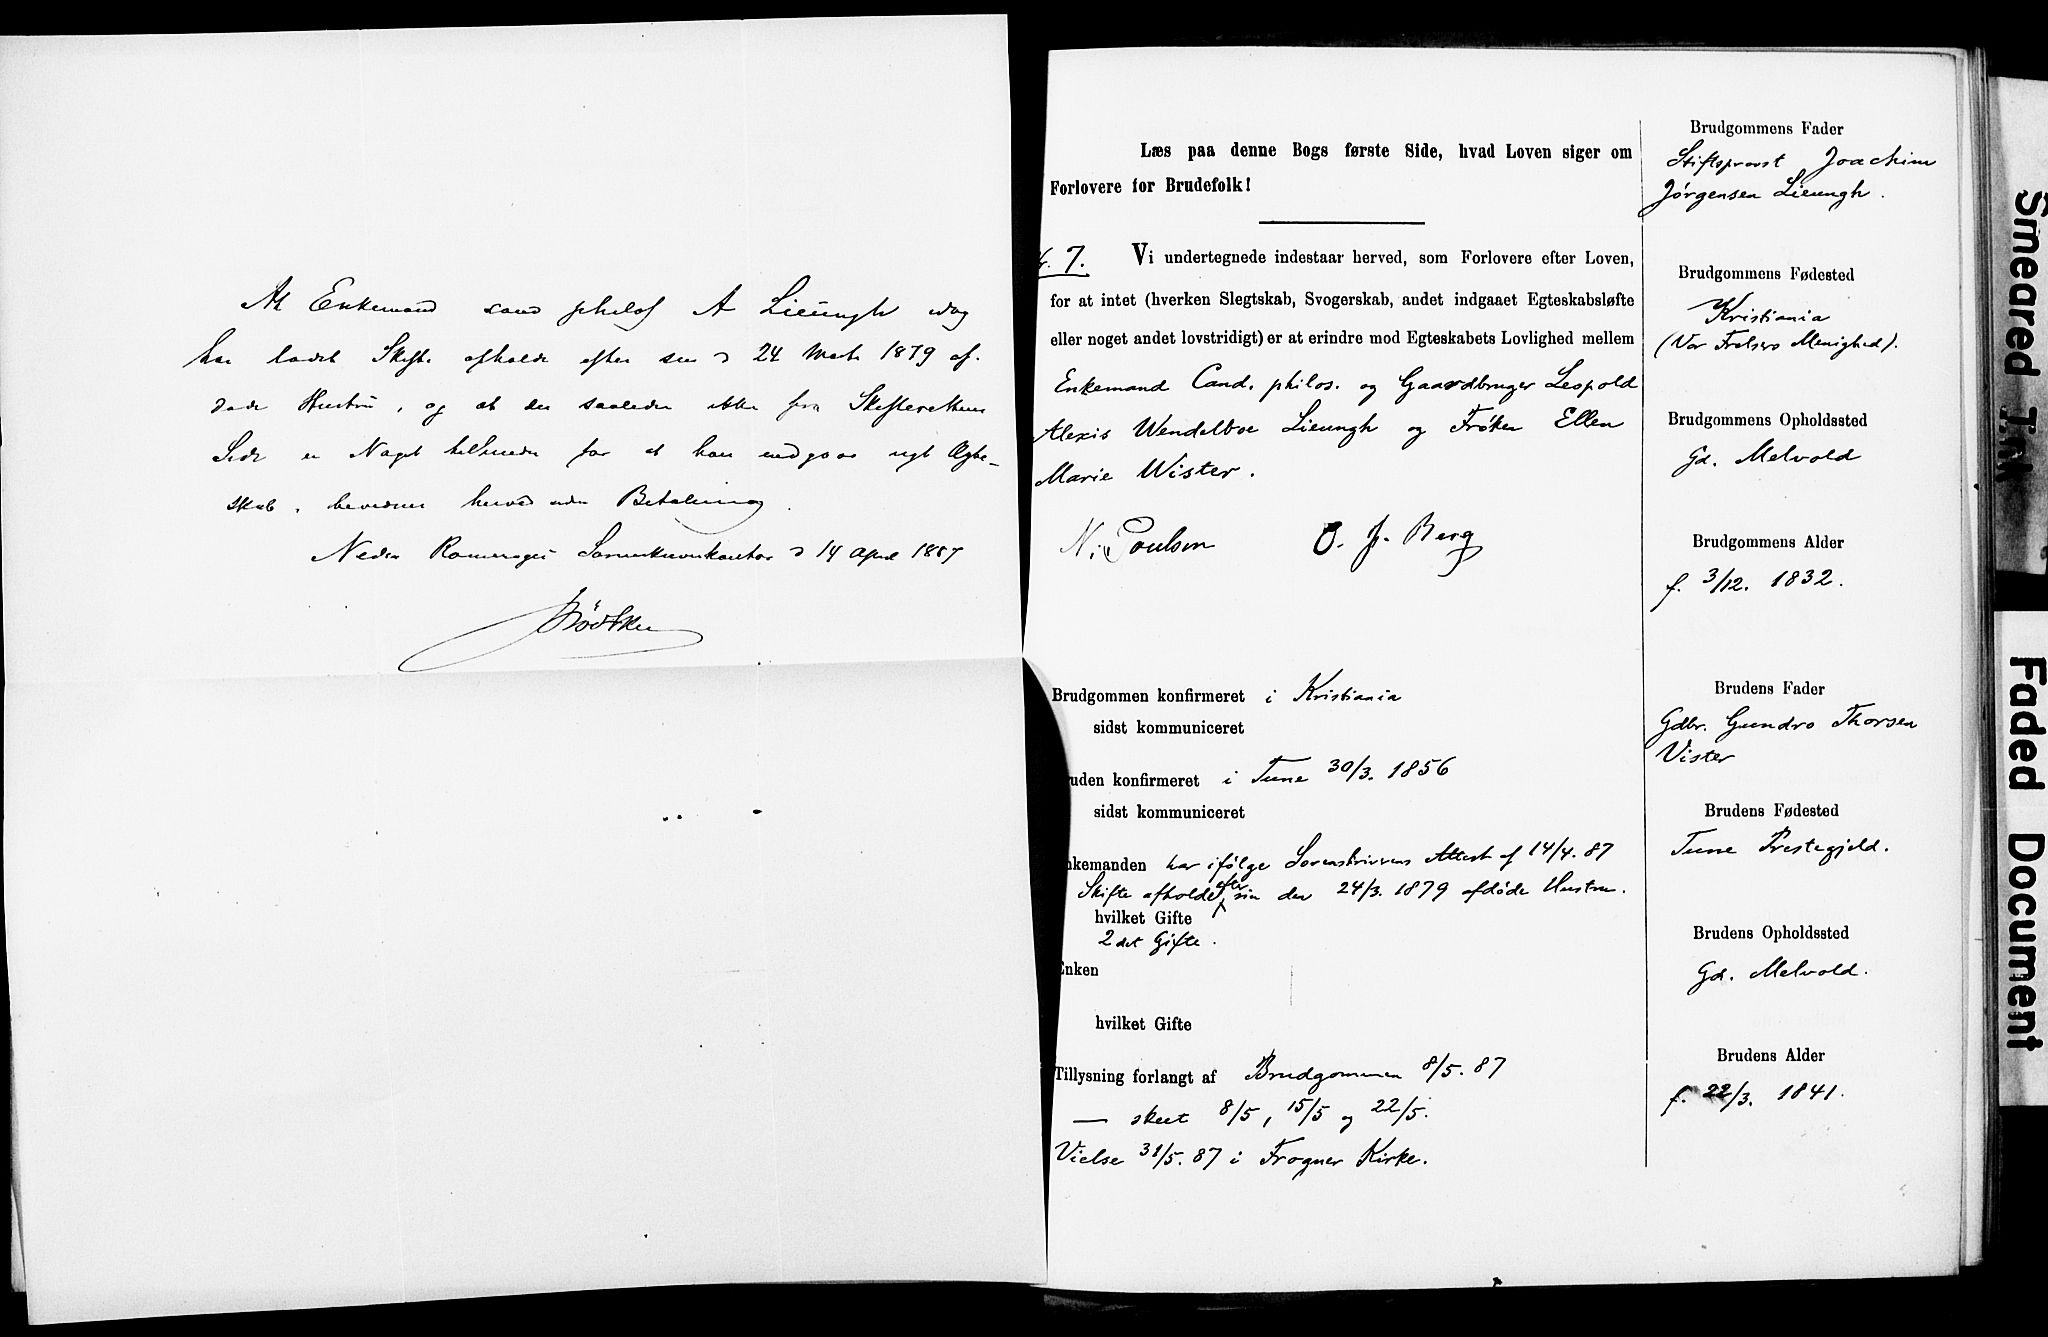 At Enkemand cand philos A Lieungh idag
har ladet Skifte afholde efter sin d 24 Marts 1879 af-
døde Hustru, og at der saaledes ikke fra Skifterettens
Side er Noget tilhinder for at han indgaar nyt Ægte-
skab, bevidnes herved uden Betaling.
Nedre Romeriges Sorenskriverkontor d 14 April 1887
Bödtker
Læs paa denne Bogs første Side, hvad Loven siger om
Forlovere for Brudefolk!
Nr. 7. Vi undertegnede indestaar herved, som Forlovere efter Loven,
for at intet (hverken Slegtskab, Svogerskab, andet indgaaet Egteskabsløfte
eller noget andet lovstridigt) er at erindre mod Egteskabets Lovlighed mellem
Enkemand Cand. philos. og Gaardbruger Leopold
Alexis Wendelboe Lieungh og Frøken Ellen
Marie Wister.
N. Poulsen O. J. Berg
Brudgommen konfirmeret i Kristiania
sidst kommuniceret
uden konfirmeret i Tune 30/3. 1856
sidst kommuniceret
nkemanden har ifølge Sorenskrivrens Attest af 14/4. 87
Skifte afholdt efter sin den 24/3. 1879 afdøde Hustru.
hvilket Gifte
2det Gifte.
Enken
hvilket Gifte
Tillysning forlangt af Brudgommen 8/5. 87
— skeet 8/5, 15/5 og 22/5.
Vielse 31/5. 87 i Frogner Kirke.
Brudgommens Fader
Stiftsprovst Joachim
Jørgensen Lieungh.
Brudgommens Fødested
Kristiania
(Vor Frelsers Menighed).
Brudgommens Opholdssted
Gd. Melvold
Brudgommens Alder
f. 3/12. 1832.
Brudens Fader
Gdbr. Gundro Thorsen
Vister
Brudens Fødested
Tune Prestegjeld.
Brudens Opholdssted
Gd. Melvold.
Brudens Alder
f. 22/3. 1841.
Smeared Ink
Faded Document